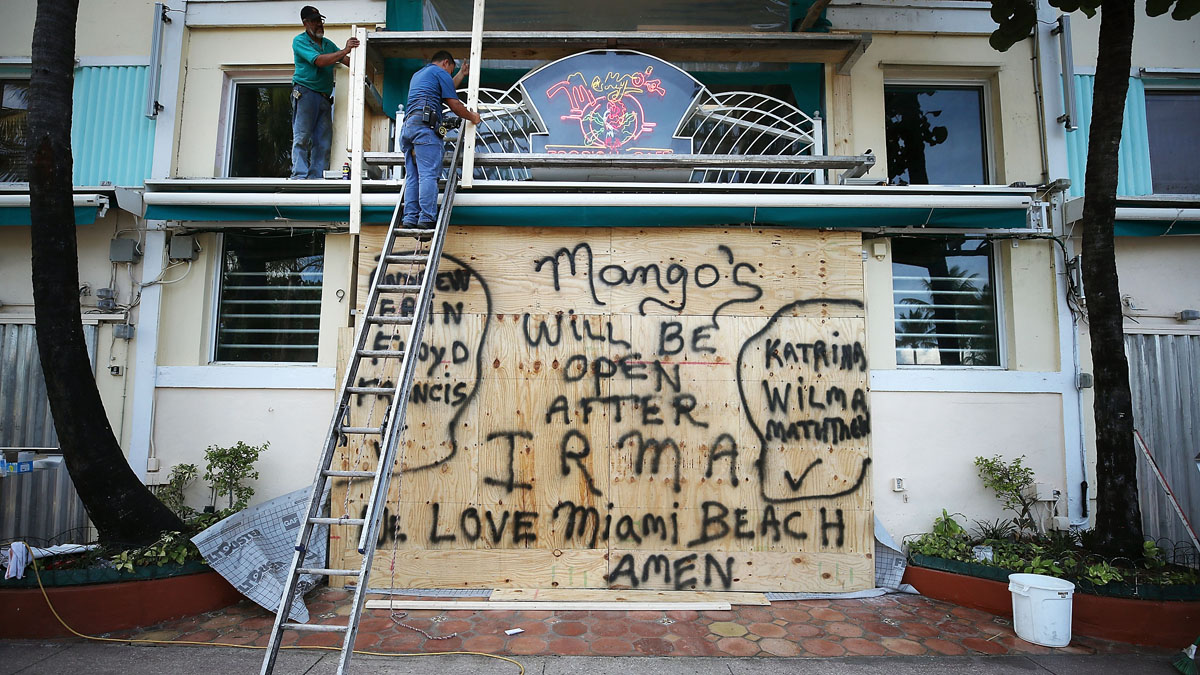 Mango's
TROPICAL CAFE
9
ANDREW
ERIN
FLOYD
FRANCIS
Mango's
WILL BE
OPEN
AFTER
IRMA
WE LOVE MiAmi BEACH
AMEN
KATRINA
WILMA
MATHTHEW